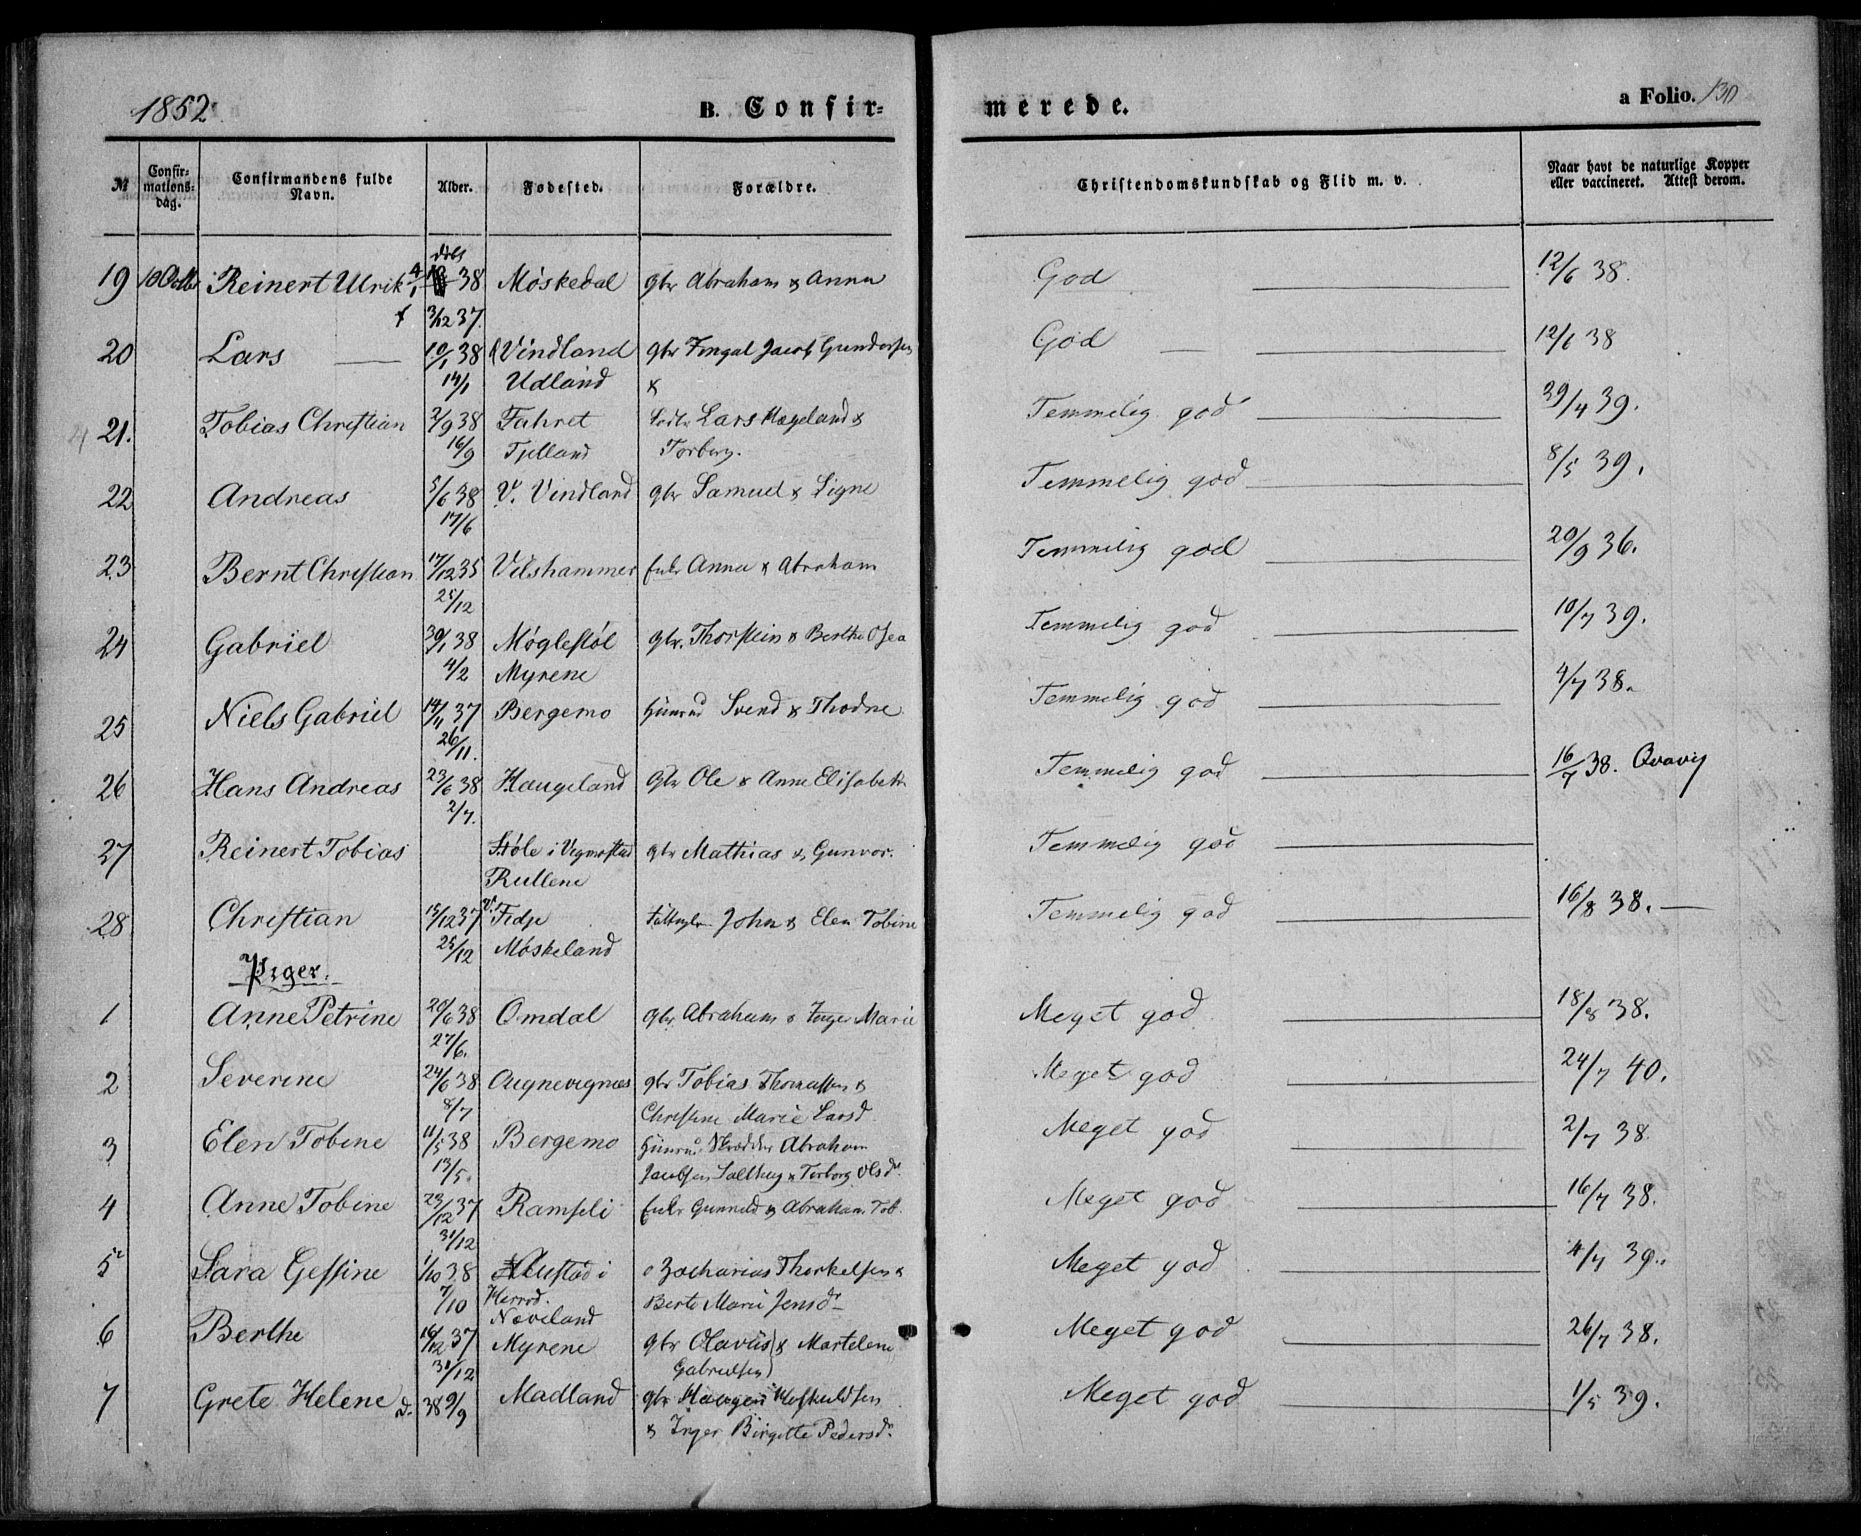 1852.
B. Confir-
merede.
a Folio. 130
№
Confir-
mations-
dag.
Confirmandens fulde
Navn.
Alder.
Fødested.
Forældre.
Christendomskundskab og Flid m. v.
Naar havt de naturlige Kopper
eller vaccineret. Attest derom.
19 10 Octbr Reinert Ulrik 4/1 38 Møskedal gbr Abraham & Anna God 12/6 38.
3/12 37.
20 Lars 10/1 38 Vindland gbr Jacob Gundersen God 12/6 38
14/1 Udland &
21. Tobias Christian 2/9 38 Fahret Lars Hægeland & Temmelig god 39.
16/9 Fjelland Torborg.
22 Andreas 5/6 38 V. Vindland gbr Samuel & Signe Temmelig god 8/5 39.
17/6
23 Bernt Christian 17/12 35 Vilshammer Anna & Abraham Temmelig god 20/9 36.
25/12
24 Gabriel 30/1 38 Møglestøl gbr. Thorstein & Berthe Temmelig god 10/7 39.
4/2 Myrene
25 Niels Gabriel 14/11 37 Bergemo Svend & Thodne Temmelig god 4/7 38.
26/11.
26 Hans Andreas 23/6 38 Haugeland gbr Ole & Anne Elisabeth Temmelig god 16/7 38.
2/7.
27 Reinert Tobias Støle i gbr Mathias & Gunvor. Temmelig god
Rullene
28 Christian 15/12 37 Fidje John & Elen Tobine Temmelig god 16/8 38.
25/12 Møskeland
Piger.
1 Anne Petrine 20/6 38 Omdal gbr Abraham & Inger Marie Meget god 18/8 38.
27/6.
2 Severine 24/6 38 gbr Tobias Thomassen & Meget god 24/7 40.
8/7 Christine Marie Larsd.
3 Elen Tobine 11/5 38 Bergemo Abraham Meget god 2/7 38
13/5. Jacobsen & Torborg Olsdr.
4 Anne Tobine 23/12 37 Ramsli Gunnild & Abraham Tob. Meget god 16/7 38.
31/12
5 Sara Gessine 1/10 38 i Zacharias Thorkelsen & Meget god 4/7 39.
7/10 Herred. Berte Marie Jensdr
Noveland
6 Berthe 16/12 37 Myrene gbr Olavus & Martelene Meget god 26/7 38.
31/12 Gabrielsen
7 Grete Helene d. 38 9/9 Madland gbr Meget god 1/5 39.
& Inger Birgitte Pedersdr.